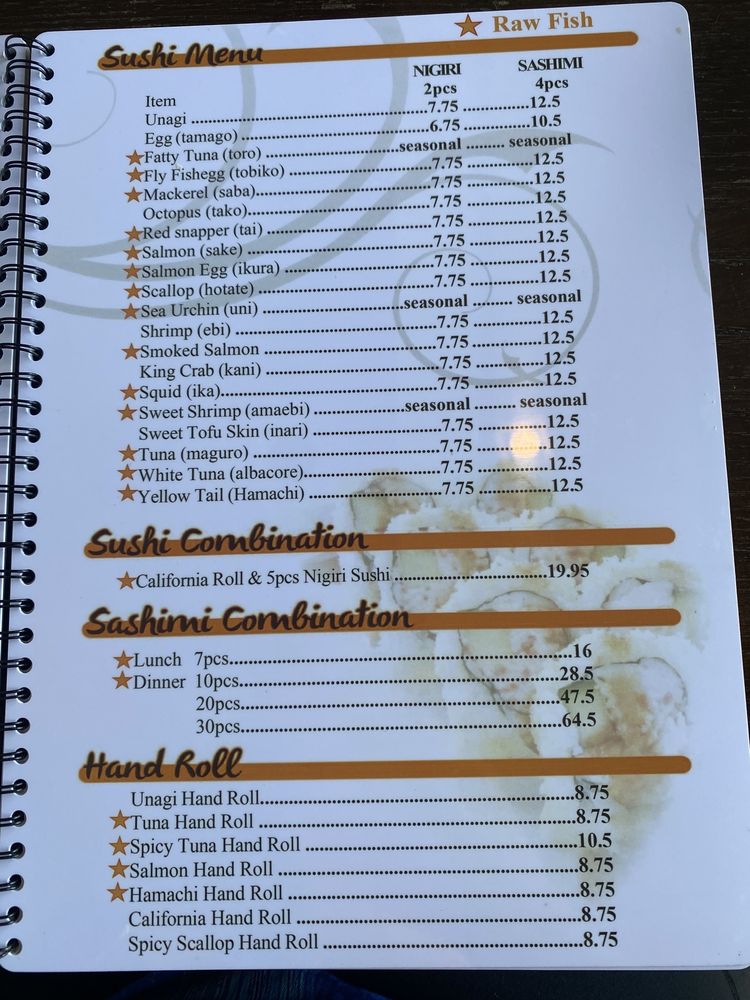 ★ Raw Fish
Sushi Menu
NIGIRI SASHIMI
Item 2pcs 4pcs
Unagi 7.75 12.5
Egg (tamago) 6.75 10.5
★ Fatty Tuna (toro) seasonal seasonal
★ Fly Fishegg (tobiko) 7.75 12.5
★ Mackerel (saba) 7.75 12.5
Octopus (tako) 7.75 12.5
★ Red snapper (tai) 7.75 12.5
★ Salmon (sake) 7.75 12.5
★ Salmon Egg (ikura) 7.75 12.5
★ Scallop (hotate) 7.75 12.5
★ Sea Urchin (uni) seasonal seasonal
Shrimp (ebi) 7.75 12.5
★ Smoked Salmon 7.75 12.5
King Crab (kani) 7.75 12.5
★ Squid (ika) 7.75 12.5
★ Sweet Shrimp (amaebi) seasonal seasonal
Sweet Tofu Skin (inari) 7.75 12.5
★ Tuna (maguro) 7,75 12.5
★ White Tuna (albacore) 7.75 12.5
★ Yellow Tail (Hamachi) 7.75 12.5
Sushi Combination
★ California Roll & 5pcs Nigiri Sushi 19.95
Sashimi Combination
★ Lunch 7pcs 16
★ Dinner 10pcs 28.5
20pcs 47.5
30pcs 64.5
Hand Roll
Unagi Hand Roll 8.75
★ Tuna Hand Roll 8.75
★ Spicy Tuna Hand Roll 10.5
★ Salmon Hand Roll 8.75
★ Hamachi Hand Roll 8.75
California Hand Roll 8.75
Spicy Scallop Hand Roll 8.75